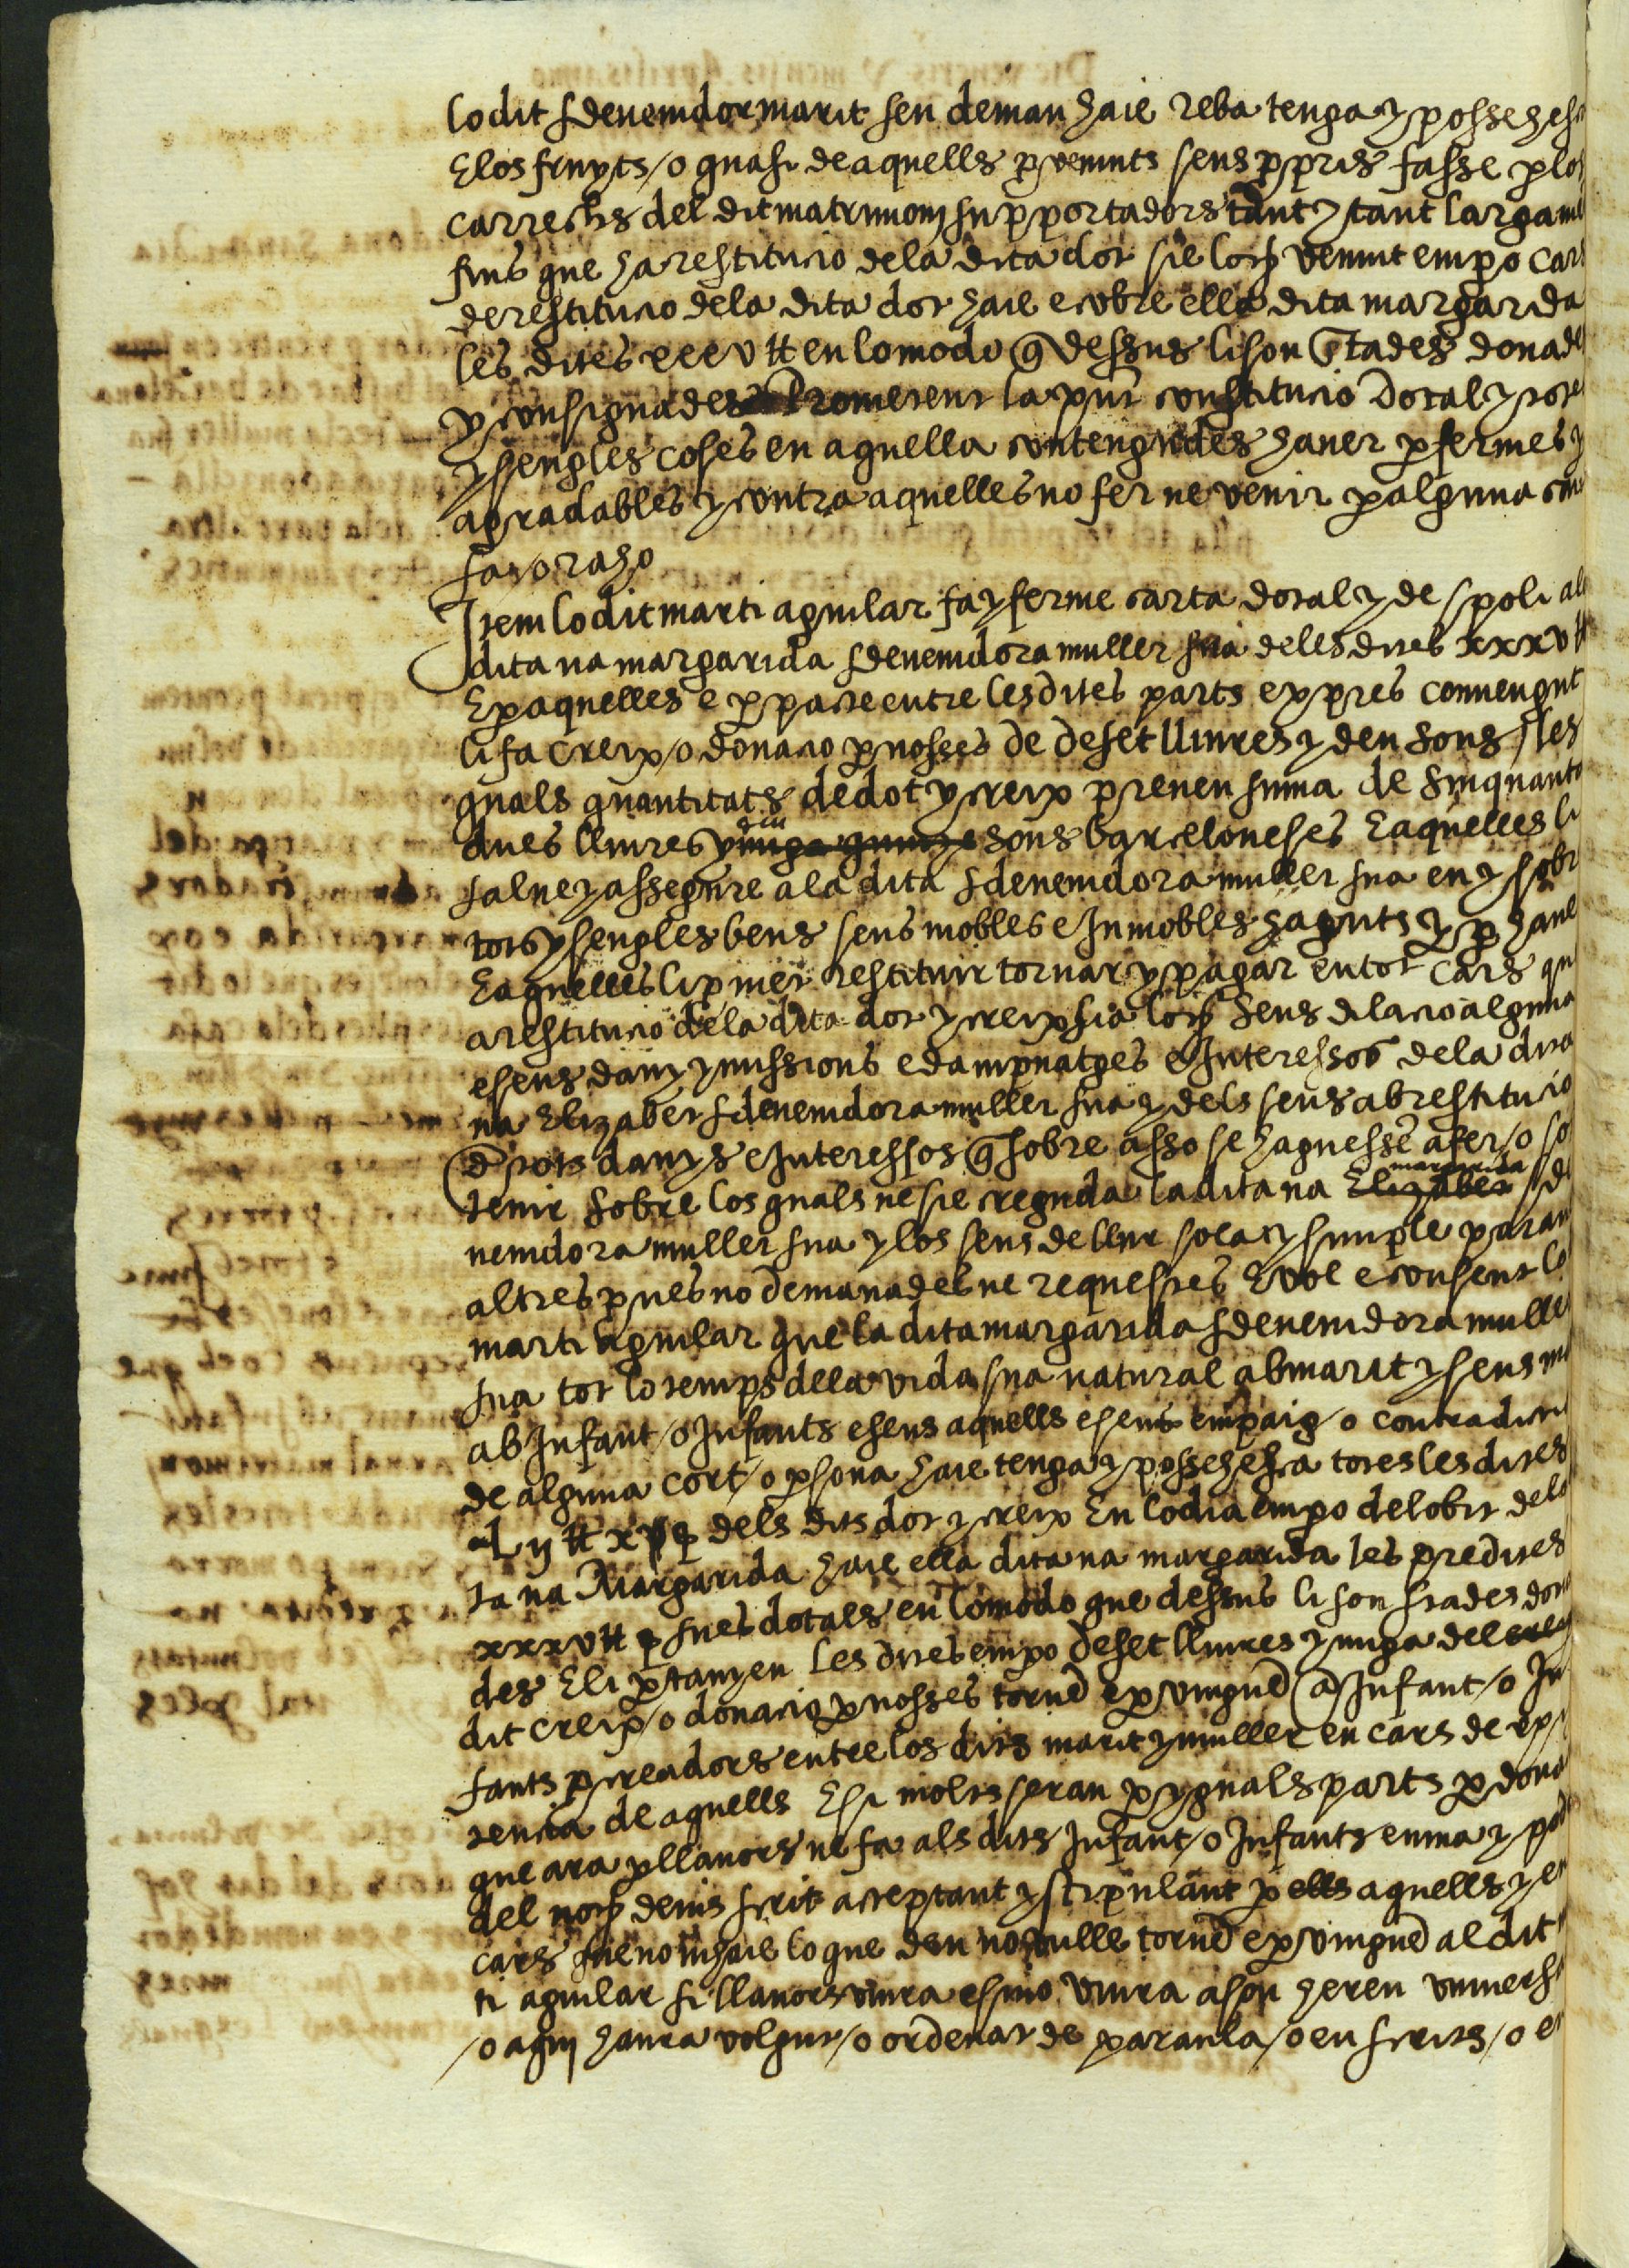 lo dit sdevenidor marit seu deman haie reba tenga y possehesc
E los fruyts / o quasi de aquells pvenints seus ppris fasse p los
carrechs del dit matrimoni supportadors tant y tant largame
fins que ha restitucio dela dita dot sie loch vennt empo cars
de restitucio dela dita dot haie e cobre ella dita margarida
les dites xxxv ll en lo modo q dessus li son stades donade
y consignades Prometent la pnt constitucio Dotal y totes
y sengles coses en aquella contengudes haver p fermes y
agradables y contra aquelles no fer ne venir p alguna cau
sa / o raho
Item lo dit marti aguilar fa y ferme carta dotal y de spoli ala
dita na margarida sdevenidora muller sua deles dites xxxv ll
E p aquelles e p pacte entre les dites parts expres convengut
li fa creix / o donacio p nosses de deset lliures y deu sous / les
quals quantitats de dot y creix prenen suma de sinquanta
dues lliures y deu sous barceloneses E aquelles li
salve y assegure ala dita sdevenidora muller sua en y sobr
tots y sengles bens seus mobles e Inmobles haguts y p have
E aquelles li pmet restituir tornar y pagar en tot cars qu
a restitucio dela dita dot y creix sia loch Sens dilacio alguna
e sens dany y missions e dampnatges e Interessos dela dita
na Elizabet sdevenidora muller sua y dels seus ab restitucio
de tots danys e Interessos q sobre asso se haguesse a fer / o so
tenir Sobre los quals ne sie creguda la dita na Elizabet margarida sde
venidora muller sua y los seus de llur sola y simple parau
altres pves no demanades ne requestes E vol e consent lo
marti aguilar que la dita margarida sdevenidora mulle
sua tot lo temps dela vida sua natural ab marit y sens ma
ab Infant / o Infants e sens aquells e sens empaig / o contradicti
de alguna cort / o psona haie tenga y possehesca totes les dites
Lij ll x ß dels dits dot y creix En lo dia empo del obit dela
ta na Margarida haie ella dita na margarida les predites
xxxv ll sues dotals en lo modo que dessus li son stades dona
des E li ptanyen Les dites empo deset lliures y miga del
dit creix / o donacio p nosses torne e p vingue a Infant / o In
fants pcreadors entre los dits marit y muller en cars de exis
tencia de aquells E si molts seran p yguals parts p dona
que ara p llavors ne fa als dits Infant / o Infants en ma y pod
del not devis scrit acceptant y stipulant p ells aquells y en
cars que no nhaie lo que deu no vulle torne e p vingue al dit
ti aguilar si llavors viura e si no viura a son hereu univers
/ o aqui haura volgut / o ordenat de paraula / o en scrits / o e